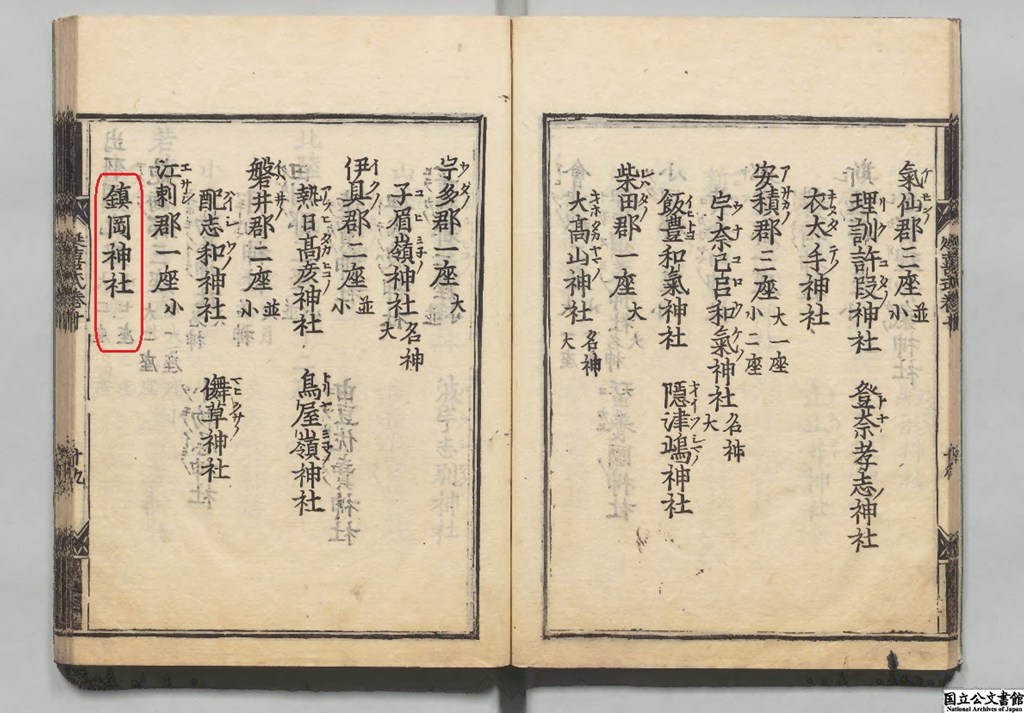 氣仙郡三座並小
理訓許段神社 登奈孝志神社
衣太手神社
安積郡三座大一座小二座
宇奈己呂和氣神社名神大
飯豊和氣神社 隠津嶋神社
柴田郡一座大
大髙山神社名神大
宇多郡一座大
子眉嶺神社名神大
伊具郡二座並小
熱日髙彦神社 鳥屋嶺神社
磐井郡二座並小
配志和神社 儛草神社
江刺郡一座小
鎮岡神社
延喜式卷十
十九
国立公文書館
National Archives of Japan